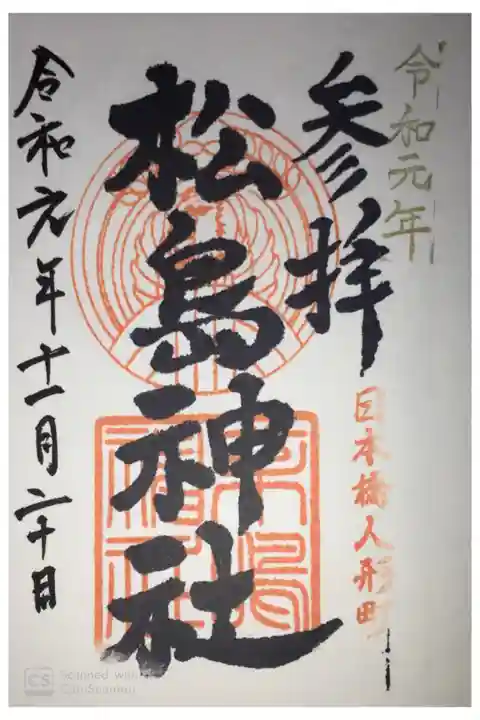 令和元年
参拝
日本橋人形町
松島神社
令和元年十一月二十日
CS Scanned with CamScanner